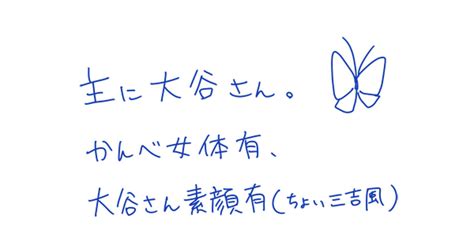 主に大谷さん。
かんべ女体有、
大谷さん素顔有(ちょい三吉風)